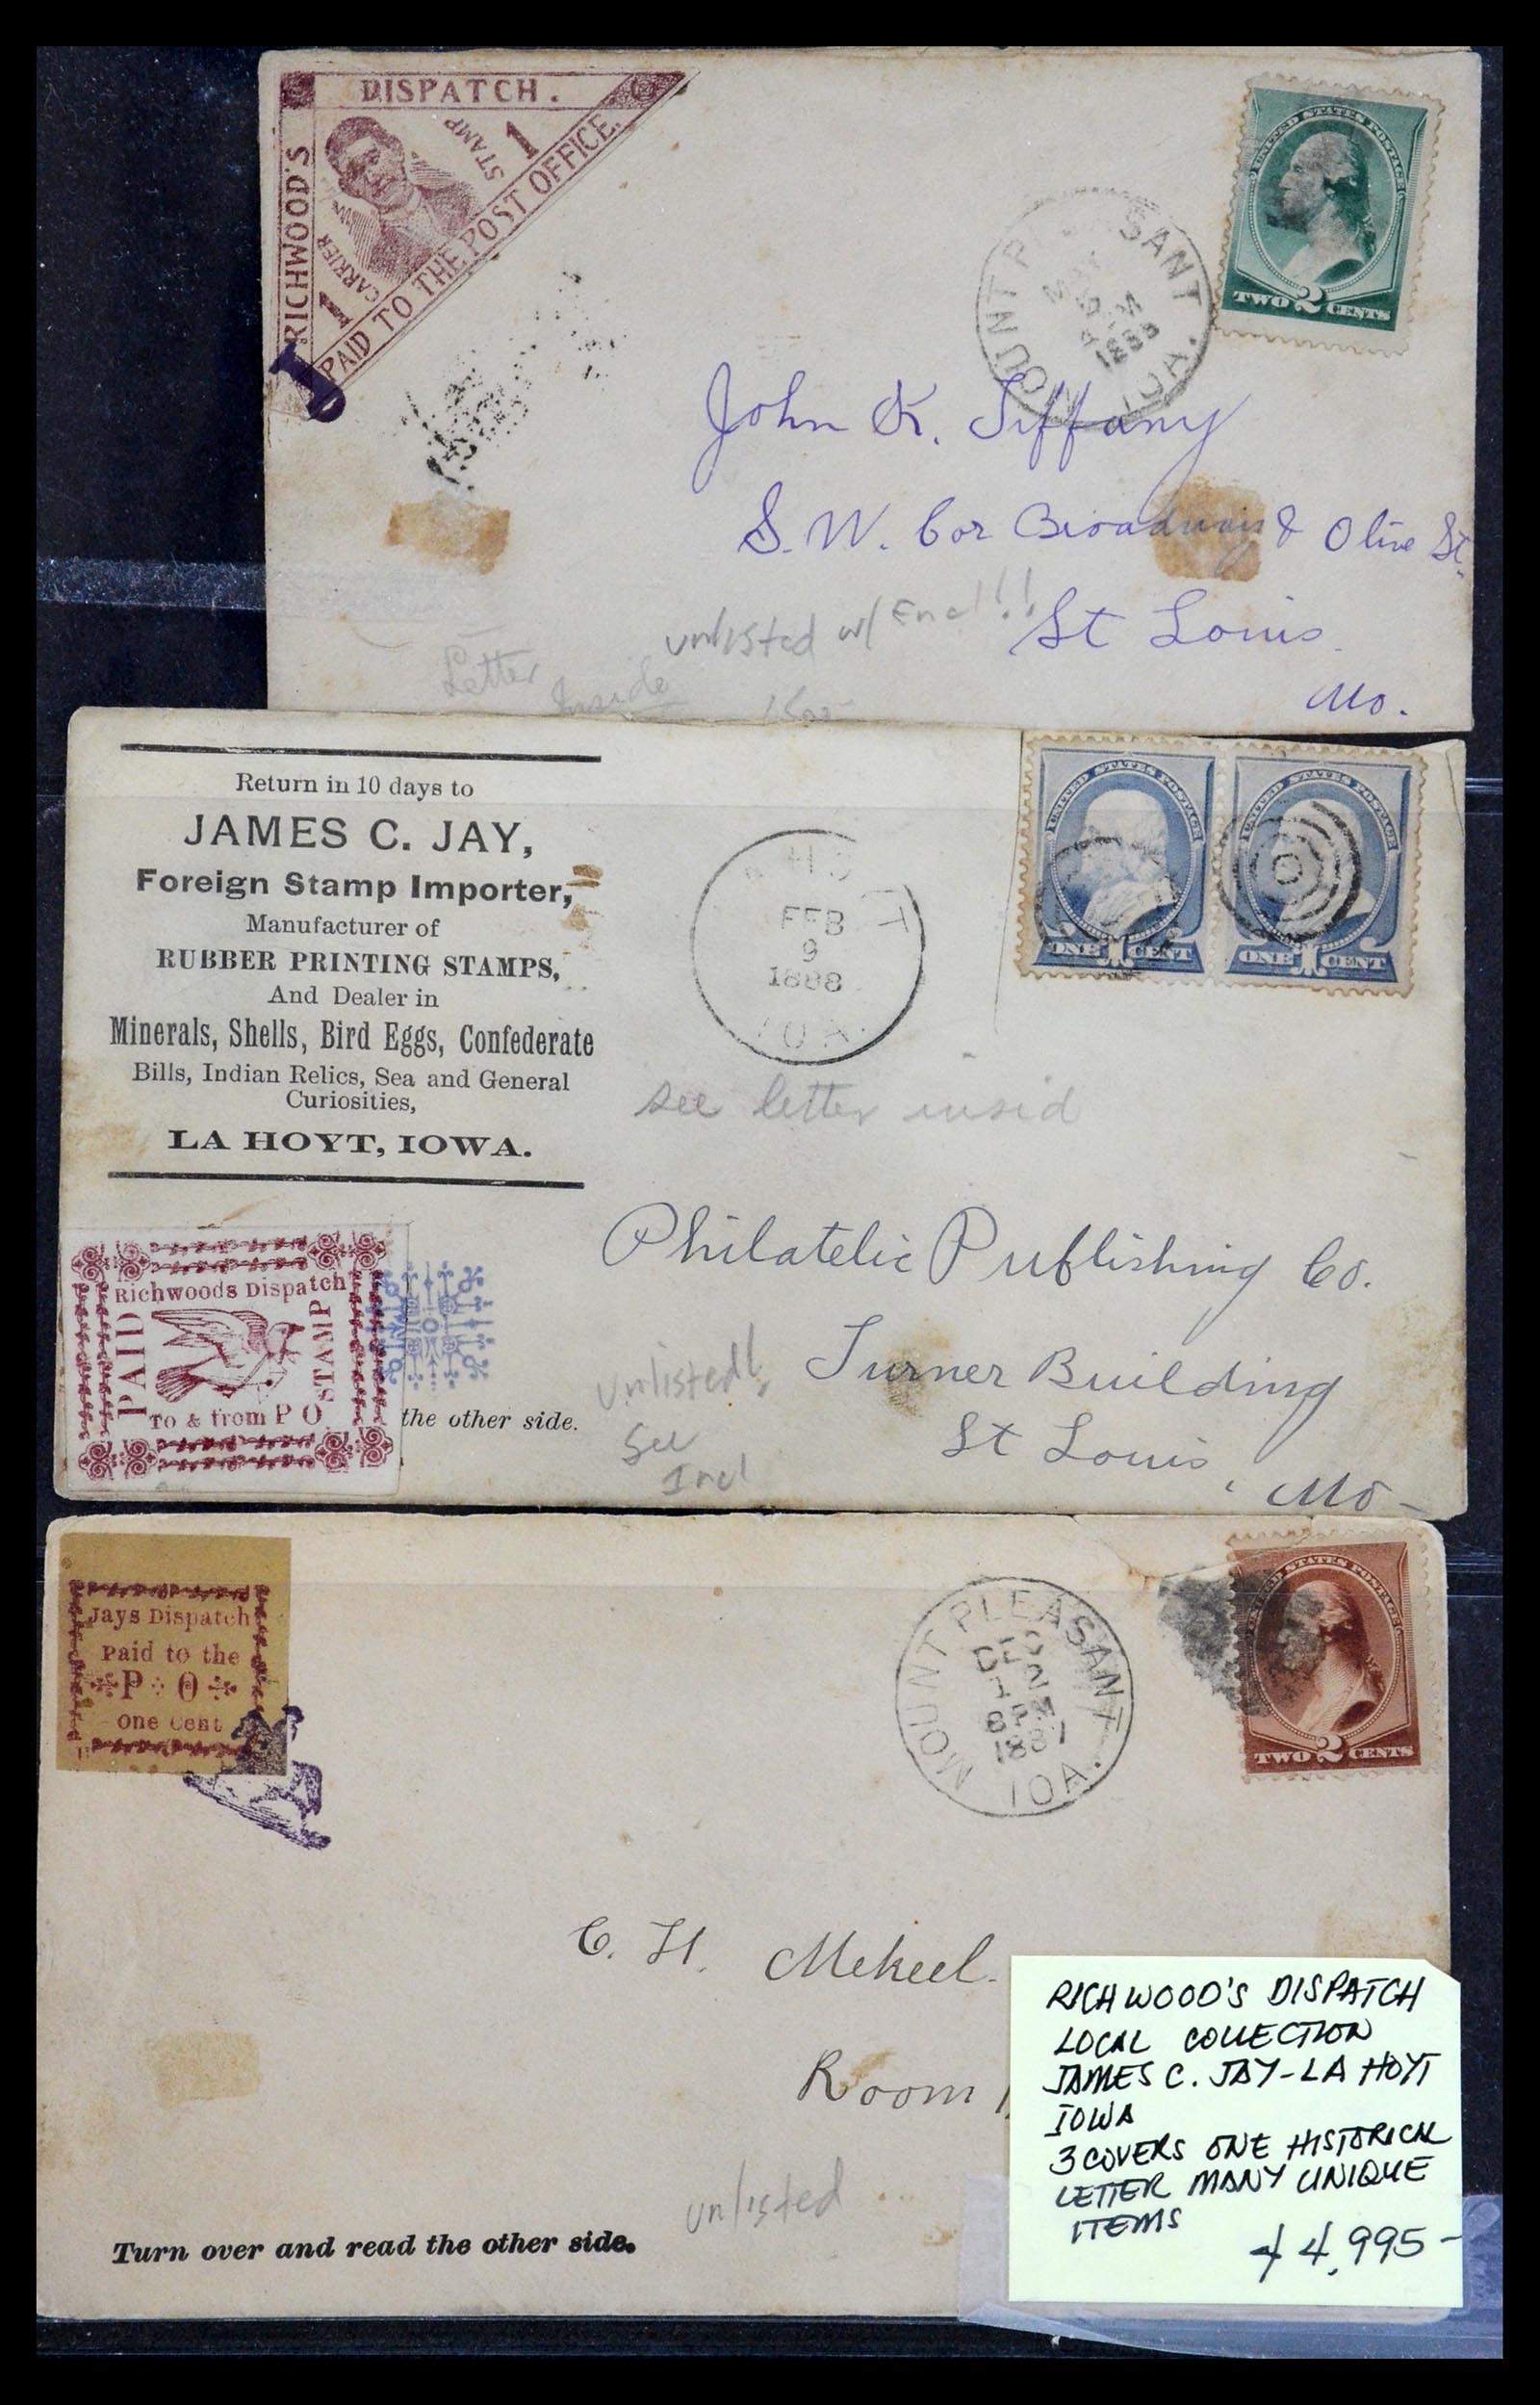 DISPATCH.
RICHWOOD'S
STAMP 1
1 CARRIER
PAID TO THE POST OFFICE.
1
UNITED STATES POSTAGE
TWO 2 CENTS
MOUNT PLEASANT
1888
IOA.
John K. Tiffany
S. W. Cor Broadway & Olive St.
St Louis
Mo.
unlisted w/ Encl!!
Letter
Inside
Return in 10 days to
JAMES C. JAY,
Foreign Stamp Importer,
Manufacturer of
RUBBER PRINTING STAMPS,
And Dealer in
Minerals, Shells, Bird Eggs, Confederate
Bills, Indian Relics, Sea and General
Curiosities,
LA HOYT, IOWA.
FEB
9
1888
IOA.
UNITED STATES POSTAGE
ONE 1 CENT
UNITED STATES POSTAGE
ONE 1 CENT
see letter insid
Philatelic Publishing Co.
Turner Building
St Louis,
Mo-
Unlisted!
See
Incl
Richwoods Dispatch
PAID
STAMP
To & from P O
the other side.
Jays Dispatch
Paid to the
P O
One Cent
MOUNT PLEASANT
DEC
2
8 PM
1887
IOA.
UNITED STATES POSTAGE
TWO 2 CENTS
C. H. Mekeel.
Room
unlisted
Turn over and read the other side.
RICHWOOD'S DISPATCH
LOCAL COLLECTION
JAMES C. JAY-LA HOYT
IOWA
3 COVERS ONE HISTORICAL
LETTER MANY UNIQUE
ITEMS
4,995-